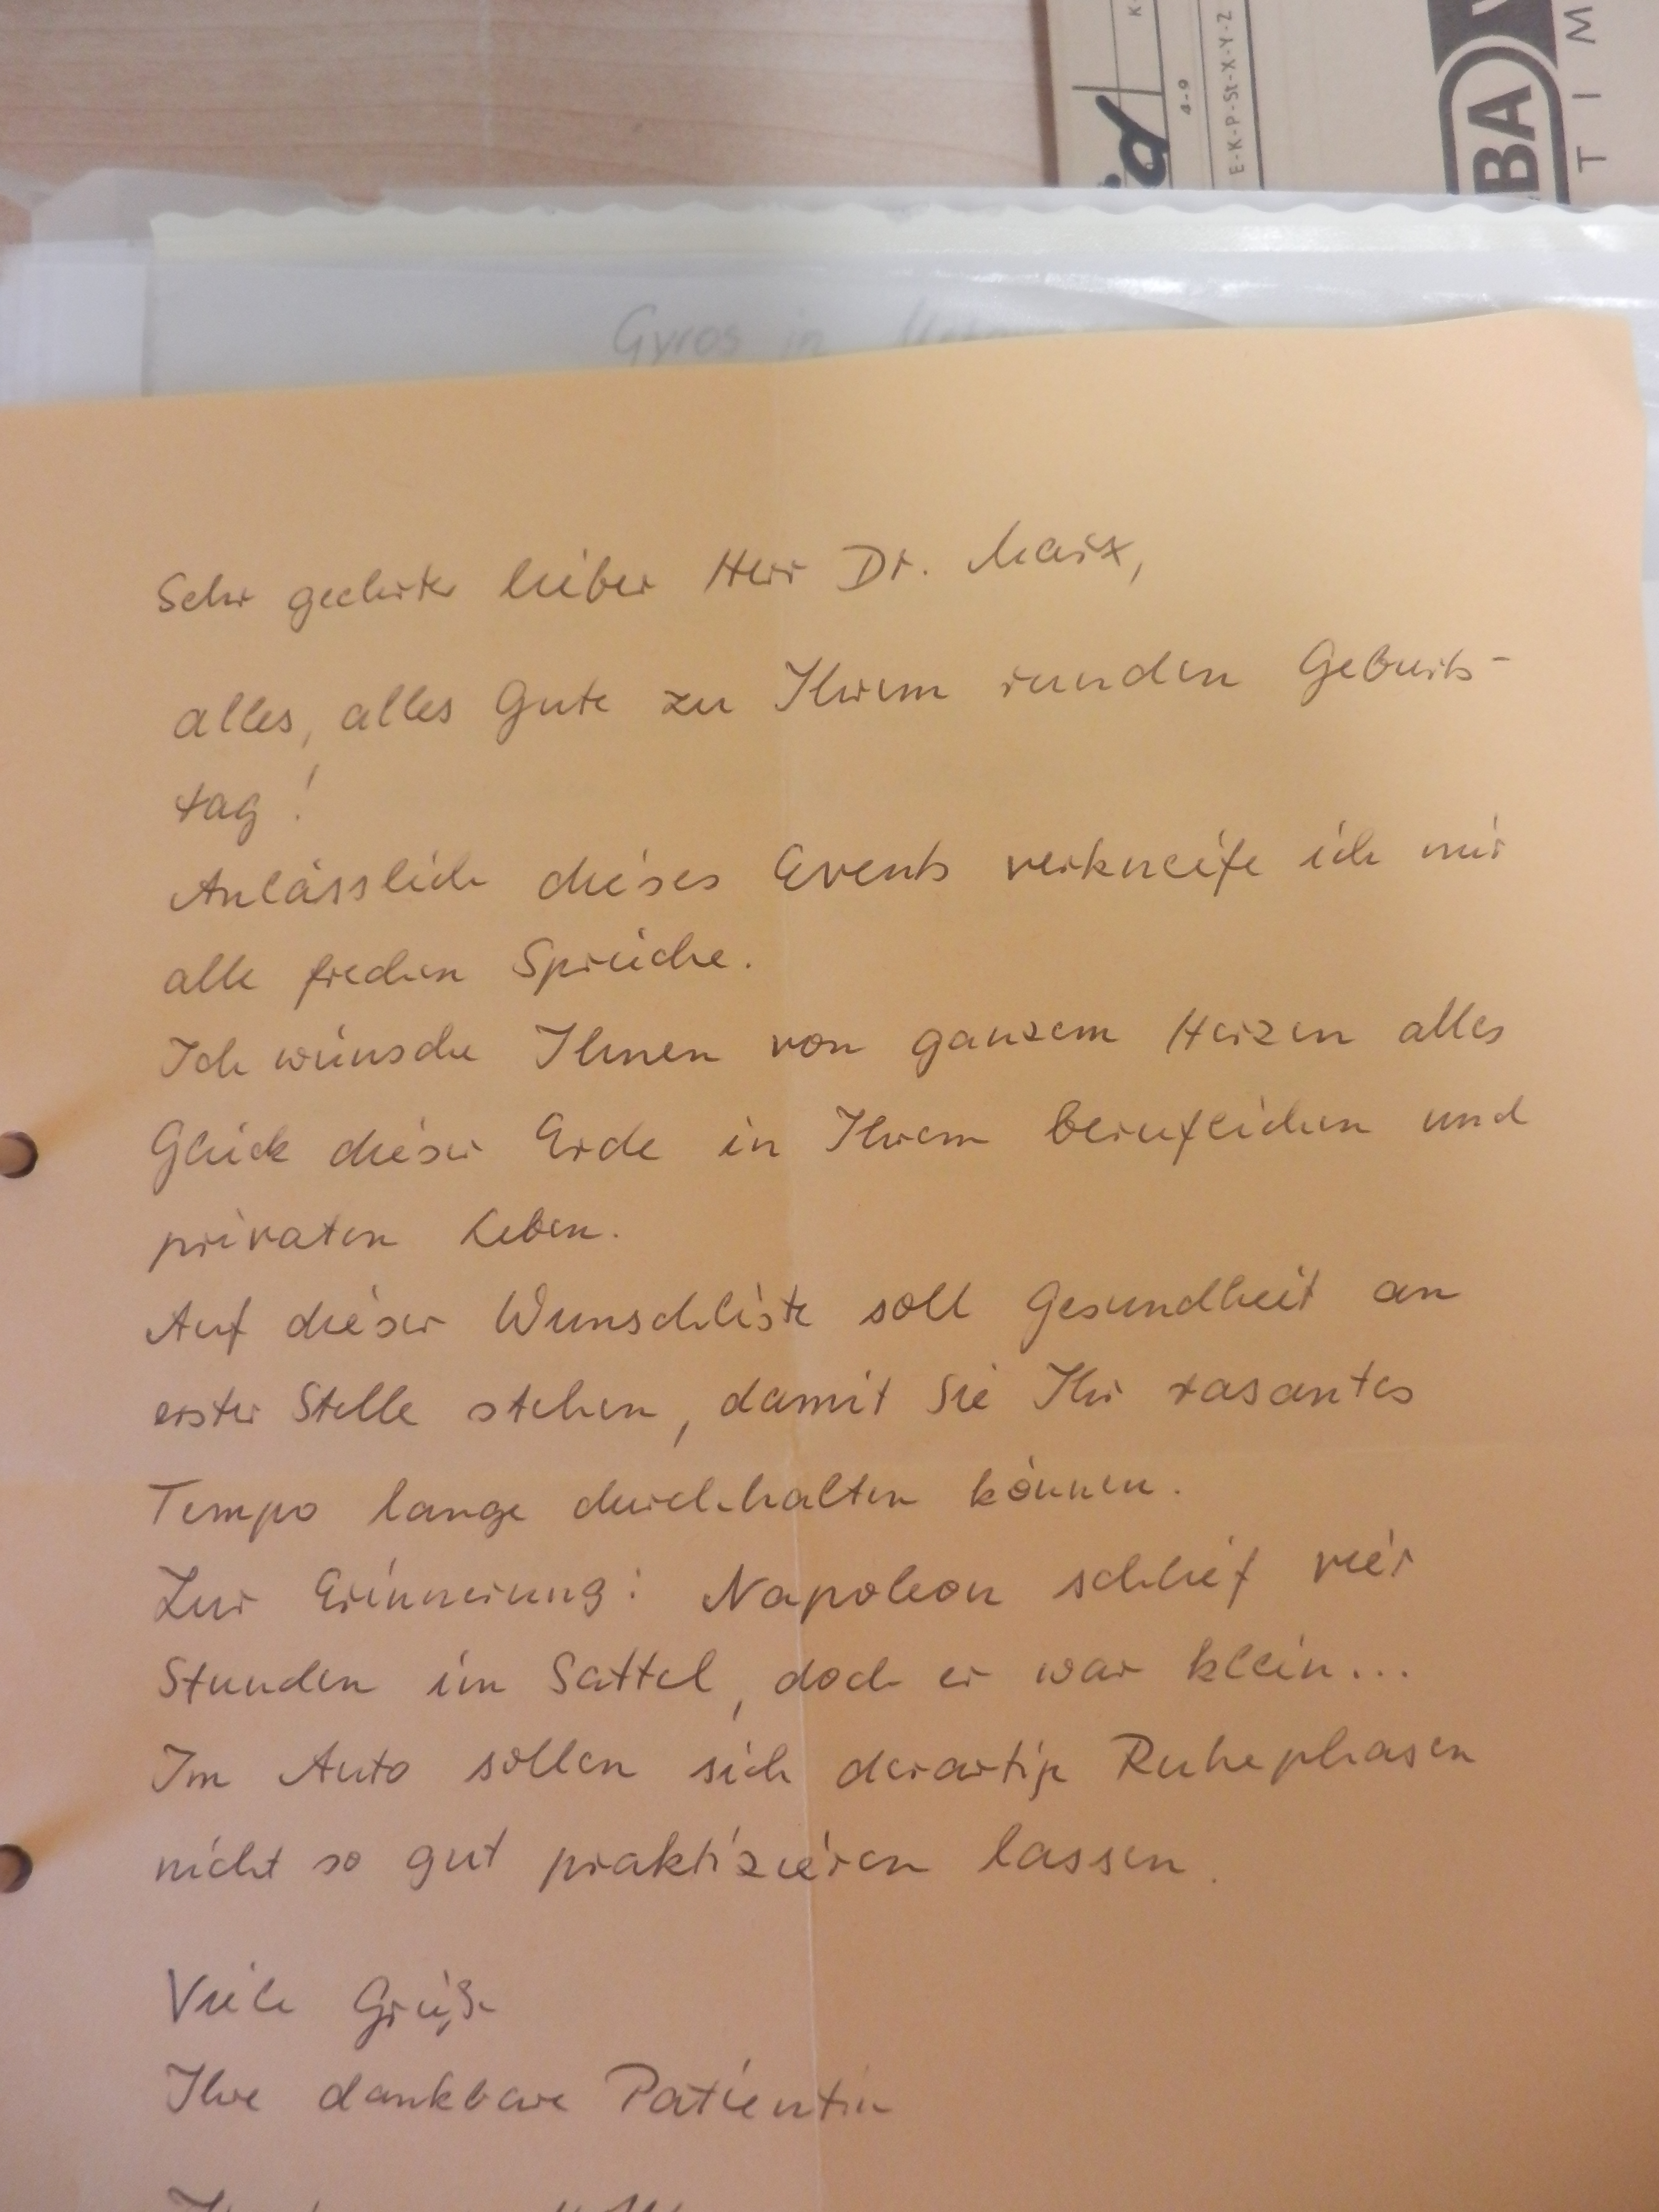 K-
4-9
E-K-P-St-X-Y-Z
BA
TIM
Gyros in
Sehr geehrter lieber Herr Dr. Marx,
alles, alles Gute zu Ihrem runden Geburts-
tag!
Anlässlich dieses Events verkneife ich mir
alle frechen Sprüche.
Ich wünsche Ihnen von ganzem Herzen alles
Glück dieser Erde in Ihrem beruflichen und
privaten Leben.
Auf dieser Wunschliste soll Gesundheit an
erster Stelle stehen, damit Sie Ihr rasantes
Tempo lange durchhalten können.
Zur Erinnerung: Napoleon schlief vier
Stunden im Sattel, doch er war klein...
Im Auto sollen sich derartige Ruhephasen
nicht so gut praktizieren lassen.
Viele Grüße
Ihre dankbare Patientin